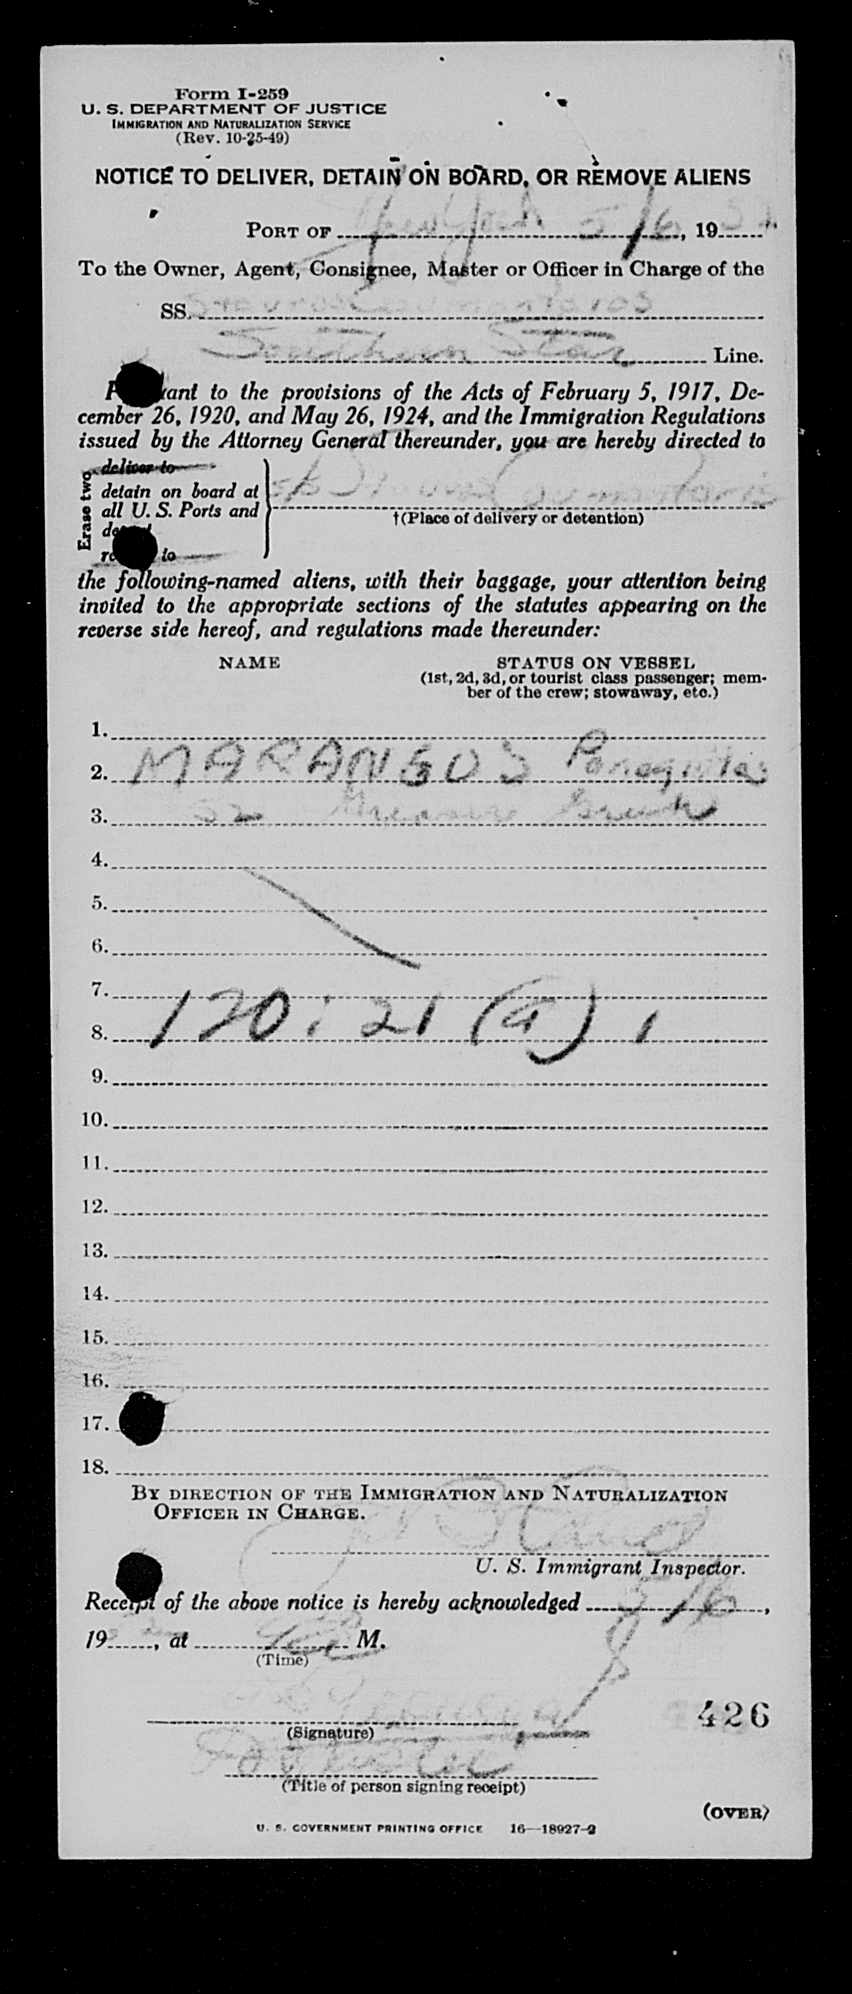 Form I-259
U. S. DEPARTMENT OF JUSTICE
IMMIGRATION AND NATURALIZATION SERVICE
(Rev. 10-25-49)
NOTICE TO DELIVER, DETAIN ON BOARD, OR REMOVE ALIENS
PORT OF New York 5/6, 19
To the Owner, Agent, Consignee, Master or Officer in Charge of the
SS. Stavros Coumantaros
Southern Star Line.
ant to the provisions of the Acts of February 5, 1917, De-
cember 26, 1920, and May 26, 1924, and the Immigration Regulations
issued by the Attorney General thereunder, you are hereby directed to
Erase two
deliver to
detain on board at
all U. S. Ports and
to
†(Place of delivery or detention)
the following-named aliens, with their baggage, your attention being
invited to the appropriate sections of the statutes appearing on the
reverse side hereof, and regulations made thereunder:
NAME STATUS ON VESSEL
(1st, 2d, 3d, or tourist class passenger; mem-
ber of the crew; stowaway, etc.)
1.
2. MARANGOS
3. 52 Greek
4.
5.
6.
7.
8. 120: 21 (a) 1
9.
10.
11.
12.
13.
14.
15.
16.
17.
18.
BY DIRECTION OF THE IMMIGRATION AND NATURALIZATION
OFFICER IN CHARGE.
U. S. Immigrant Inspector.
Receipt of the above notice is hereby acknowledged 5/6,
19, at M.
(Time)
426
(Signature)
(Title of person signing receipt)
(OVER)
U. S. GOVERNMENT PRINTING OFFICE 16—18927-2